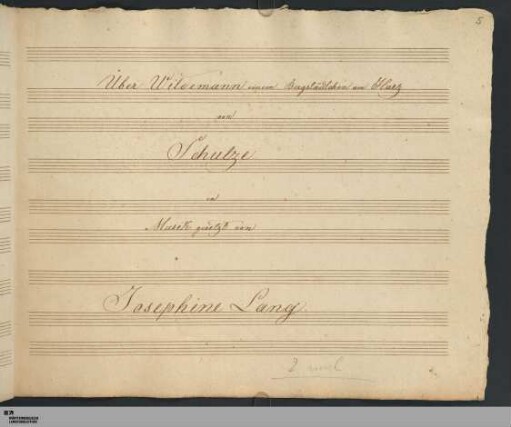 5
Über Wildemann einem Bergstädtchen am Harz
von
Schulze
in
Musik gesetzt von
Josephine Lang
2 mal